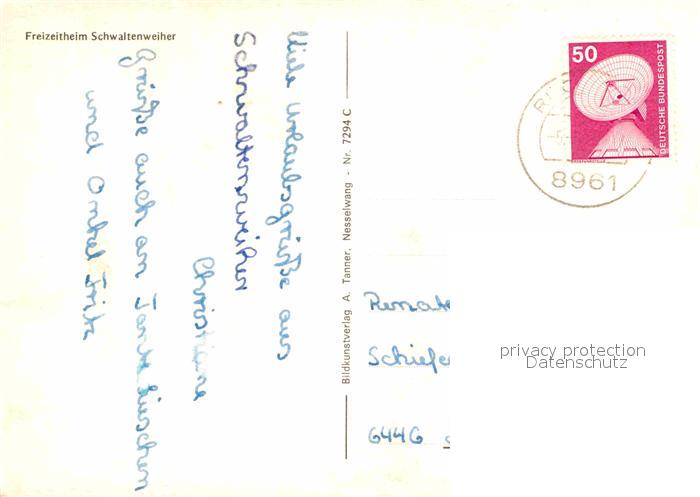 Freizeitheim Schwaltenweiher
Viele Urlaubsgrüße aus
Schwaltenweiher
Christiane
Grüße auch an Tante Lieschen
und Onkel Fritz
Bildkunstverlag A. Tanner, Nesselwang - Nr. 7294 C
50
DEUTSCHE BUNDESPOST
8961
Renate
Schiefe
6446
privacy protection
Datenschutz